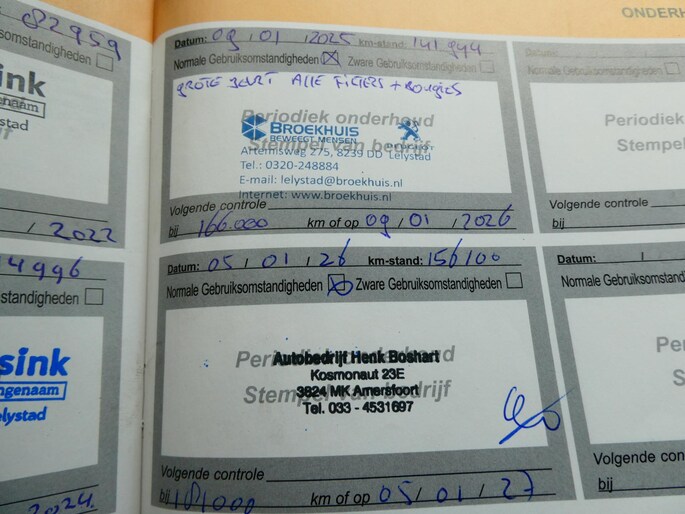 82959
nstandigheden
sink
ngenaam
elystad
rijf
/ 2022
14996
standigheden
sink
ngenaam
elystad
2024
Datum: 09 / 01 / 2025 km-stand: 141944
Normale Gebruiksomstandigheden Zware Gebruiksomstandigheden
GROTE BEURT ALLE FILTERS + BOUGIES
Periodiek onderhoud
Stempel van bedrijf
BROEKHUIS
BEWEEGT MENSEN
PEUGEOT
Artemisweg 275, 8239 DD Lelystad
Tel.: 0320-248884
E-mail: lelystad@broekhuis.nl
Internet: www.broekhuis.nl
Volgende controle
bij 166.000 km of op 09 / 01 / 2026
Datum: 05 / 01 / 26 km-stand: 156100
Normale Gebruiksomstandigheden Zware Gebruiksomstandigheden
Periodiek onderhoud
Stempel van bedrijf
Autobedrijf Henk Boshart
Kosmonaut 23E
3824 MK Amersfoort
Tel. 033 - 4531697
Volgende controle
bij 181000 km of op 05 / 01 / 27
ONDERH
Datum: / /
Normale Gebruiksomstandigheden
Periodiek
Stempel van
Volgende controle
bij
Datum: /
Normale Gebruiksomstandigh
P
St
Volgende controle
bij